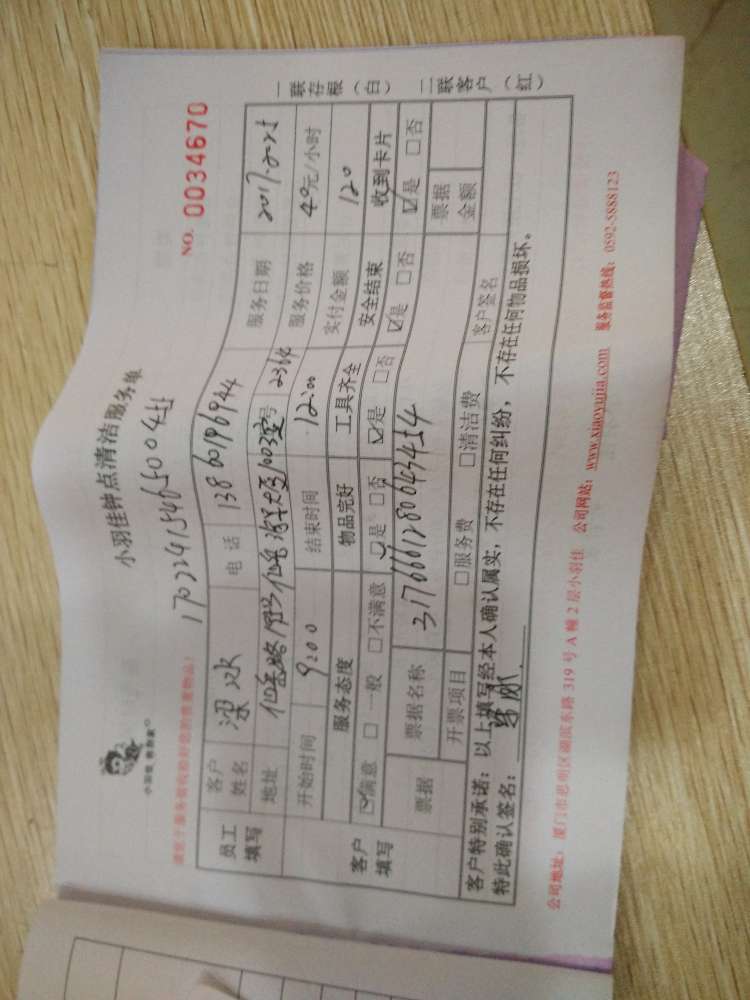 小羽佳钟点清洁服务单
NO. 0034670
小羽佳 救助家
请在于服务前收拾好您的贵重物品!
员工填写 客户姓名 梁冰 电话 13860196944 服务日期 2017.2.25
地址 仙岳路 号 1003室 服务价格 40元/小时
开始时间 9:00 结束时间 12:00 实付金额 120
客户填写 服务态度 物品完好 工具齐全 安全结束 收到卡片
☑满意 □一般 □不满意 ☑是 □否 ☑是 □否 ☑是 □否 ☑是 □否
票据 票据名称 票据金额
开票项目 □服务费 □清洁费 客户签名
客户特别承诺:以上填写经本人确认属实,不存在任何纠纷,不存在任何物品损坏。
特此确认签名:
公司地址:厦门市思明区湖滨东路 319 号 A 幢 2 层小羽佳 公司网站:www.xiaoyujia.com 服务监督热线:0592-5888123
一联存根(白) 二联客户(红)